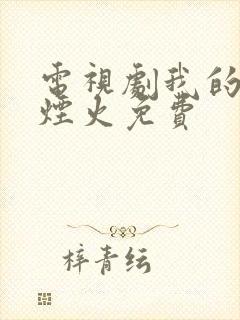 電視劇我的
煙火免費
梓青纭